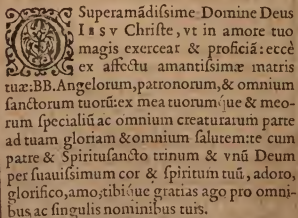 O Superamãdissime Domine Deus
IESV Christe, vt in amore tuo
magis exercear & proficiã: eccè
ex affectu amantissimæ matris
tuæ: BB. Angelorum, patronorum, & omnium
sanctorum tuorũ: ex mea tuorumque & meo-
rum specialiũ ac omnium creaturarum parte
ad tuam gloriam & omnium salutem: te cum
patre & Spiritusancto trinum & vnũ Deum
per suauissimum cor & spiritum tuũ, adoro,
glorifico, amo, tibique gratias ago pro omni-
bus ac singulis nominibus tuis.